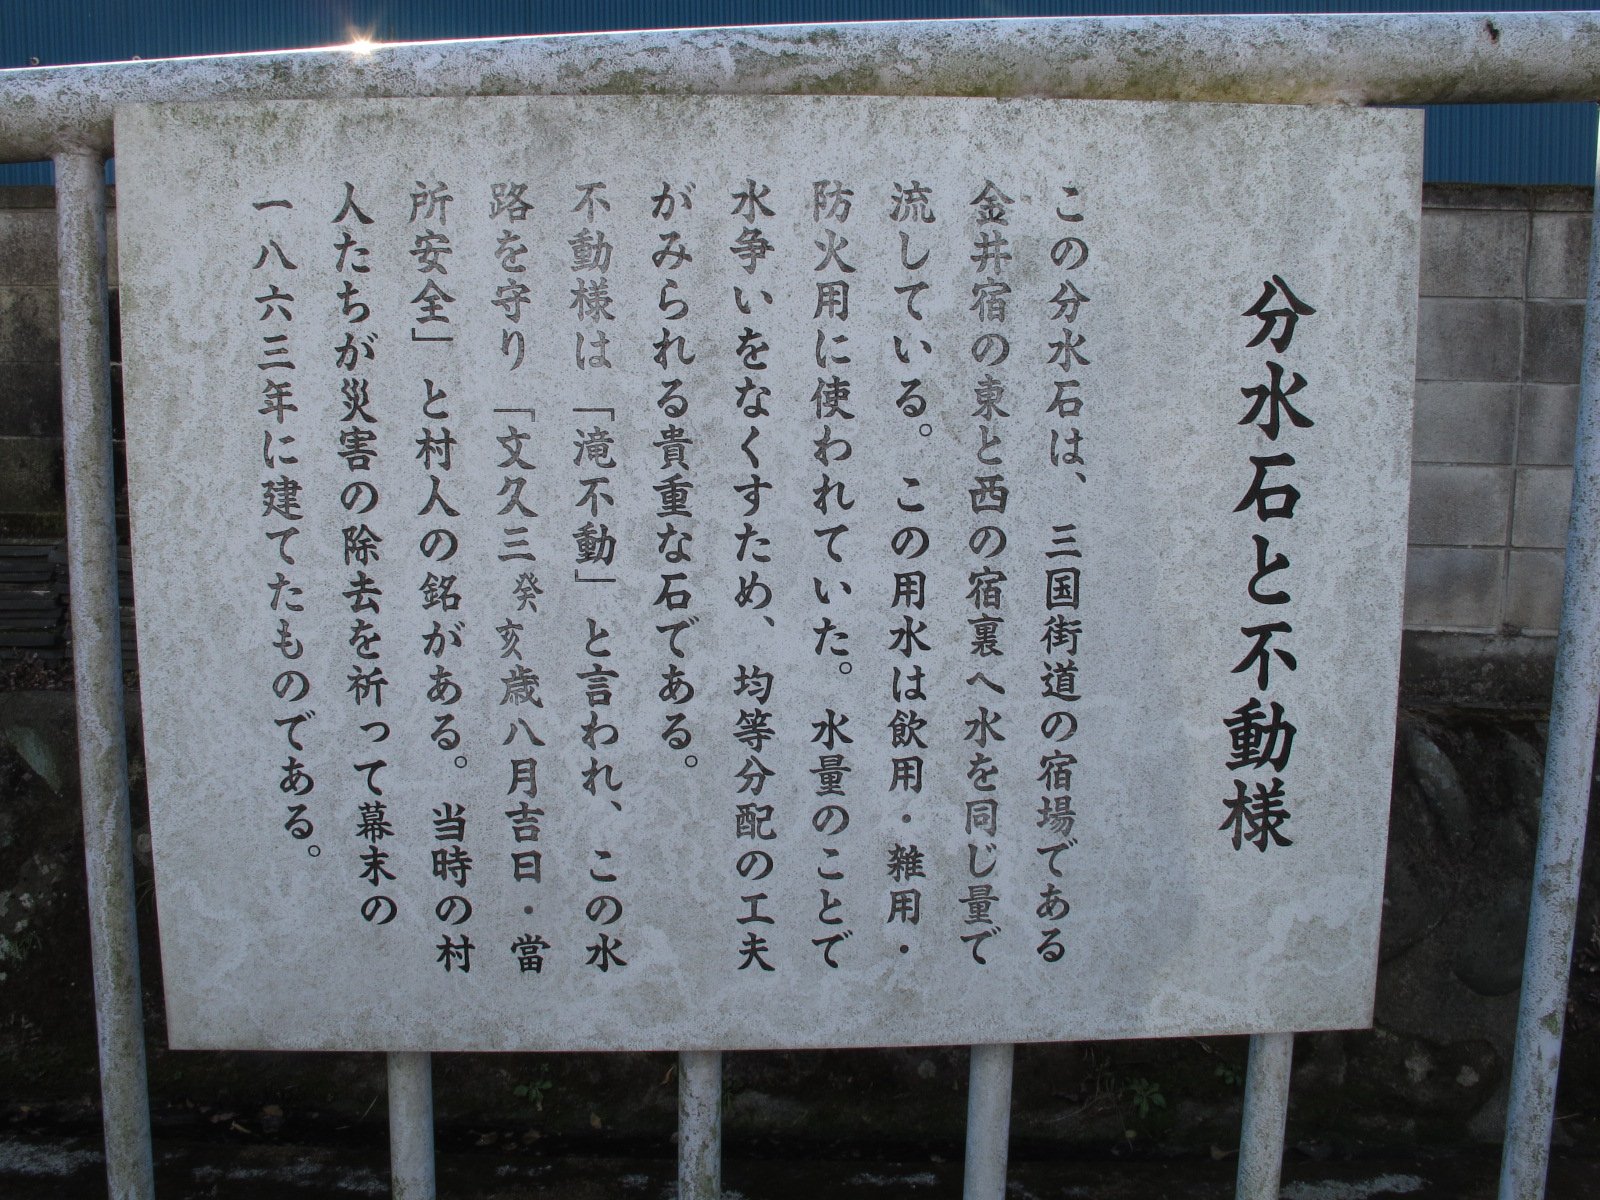 分水石と不動様
この分水石は、三国街道の宿場である
金井宿の東と西の宿裏へ水を同じ量で
流している。この用水は飲用・雑用・
防火用に使われていた。水量のことで
水争いをなくすため、均等分配の工夫
がみられる貴重な石である。
不動様は「滝不動」と言われ、この水
路を守り「文久三癸亥歳八月吉日・當
所安全」と村人の銘がある。当時の村
人たちが災害の除去を祈って幕末の
一八六三年に建てたものである。